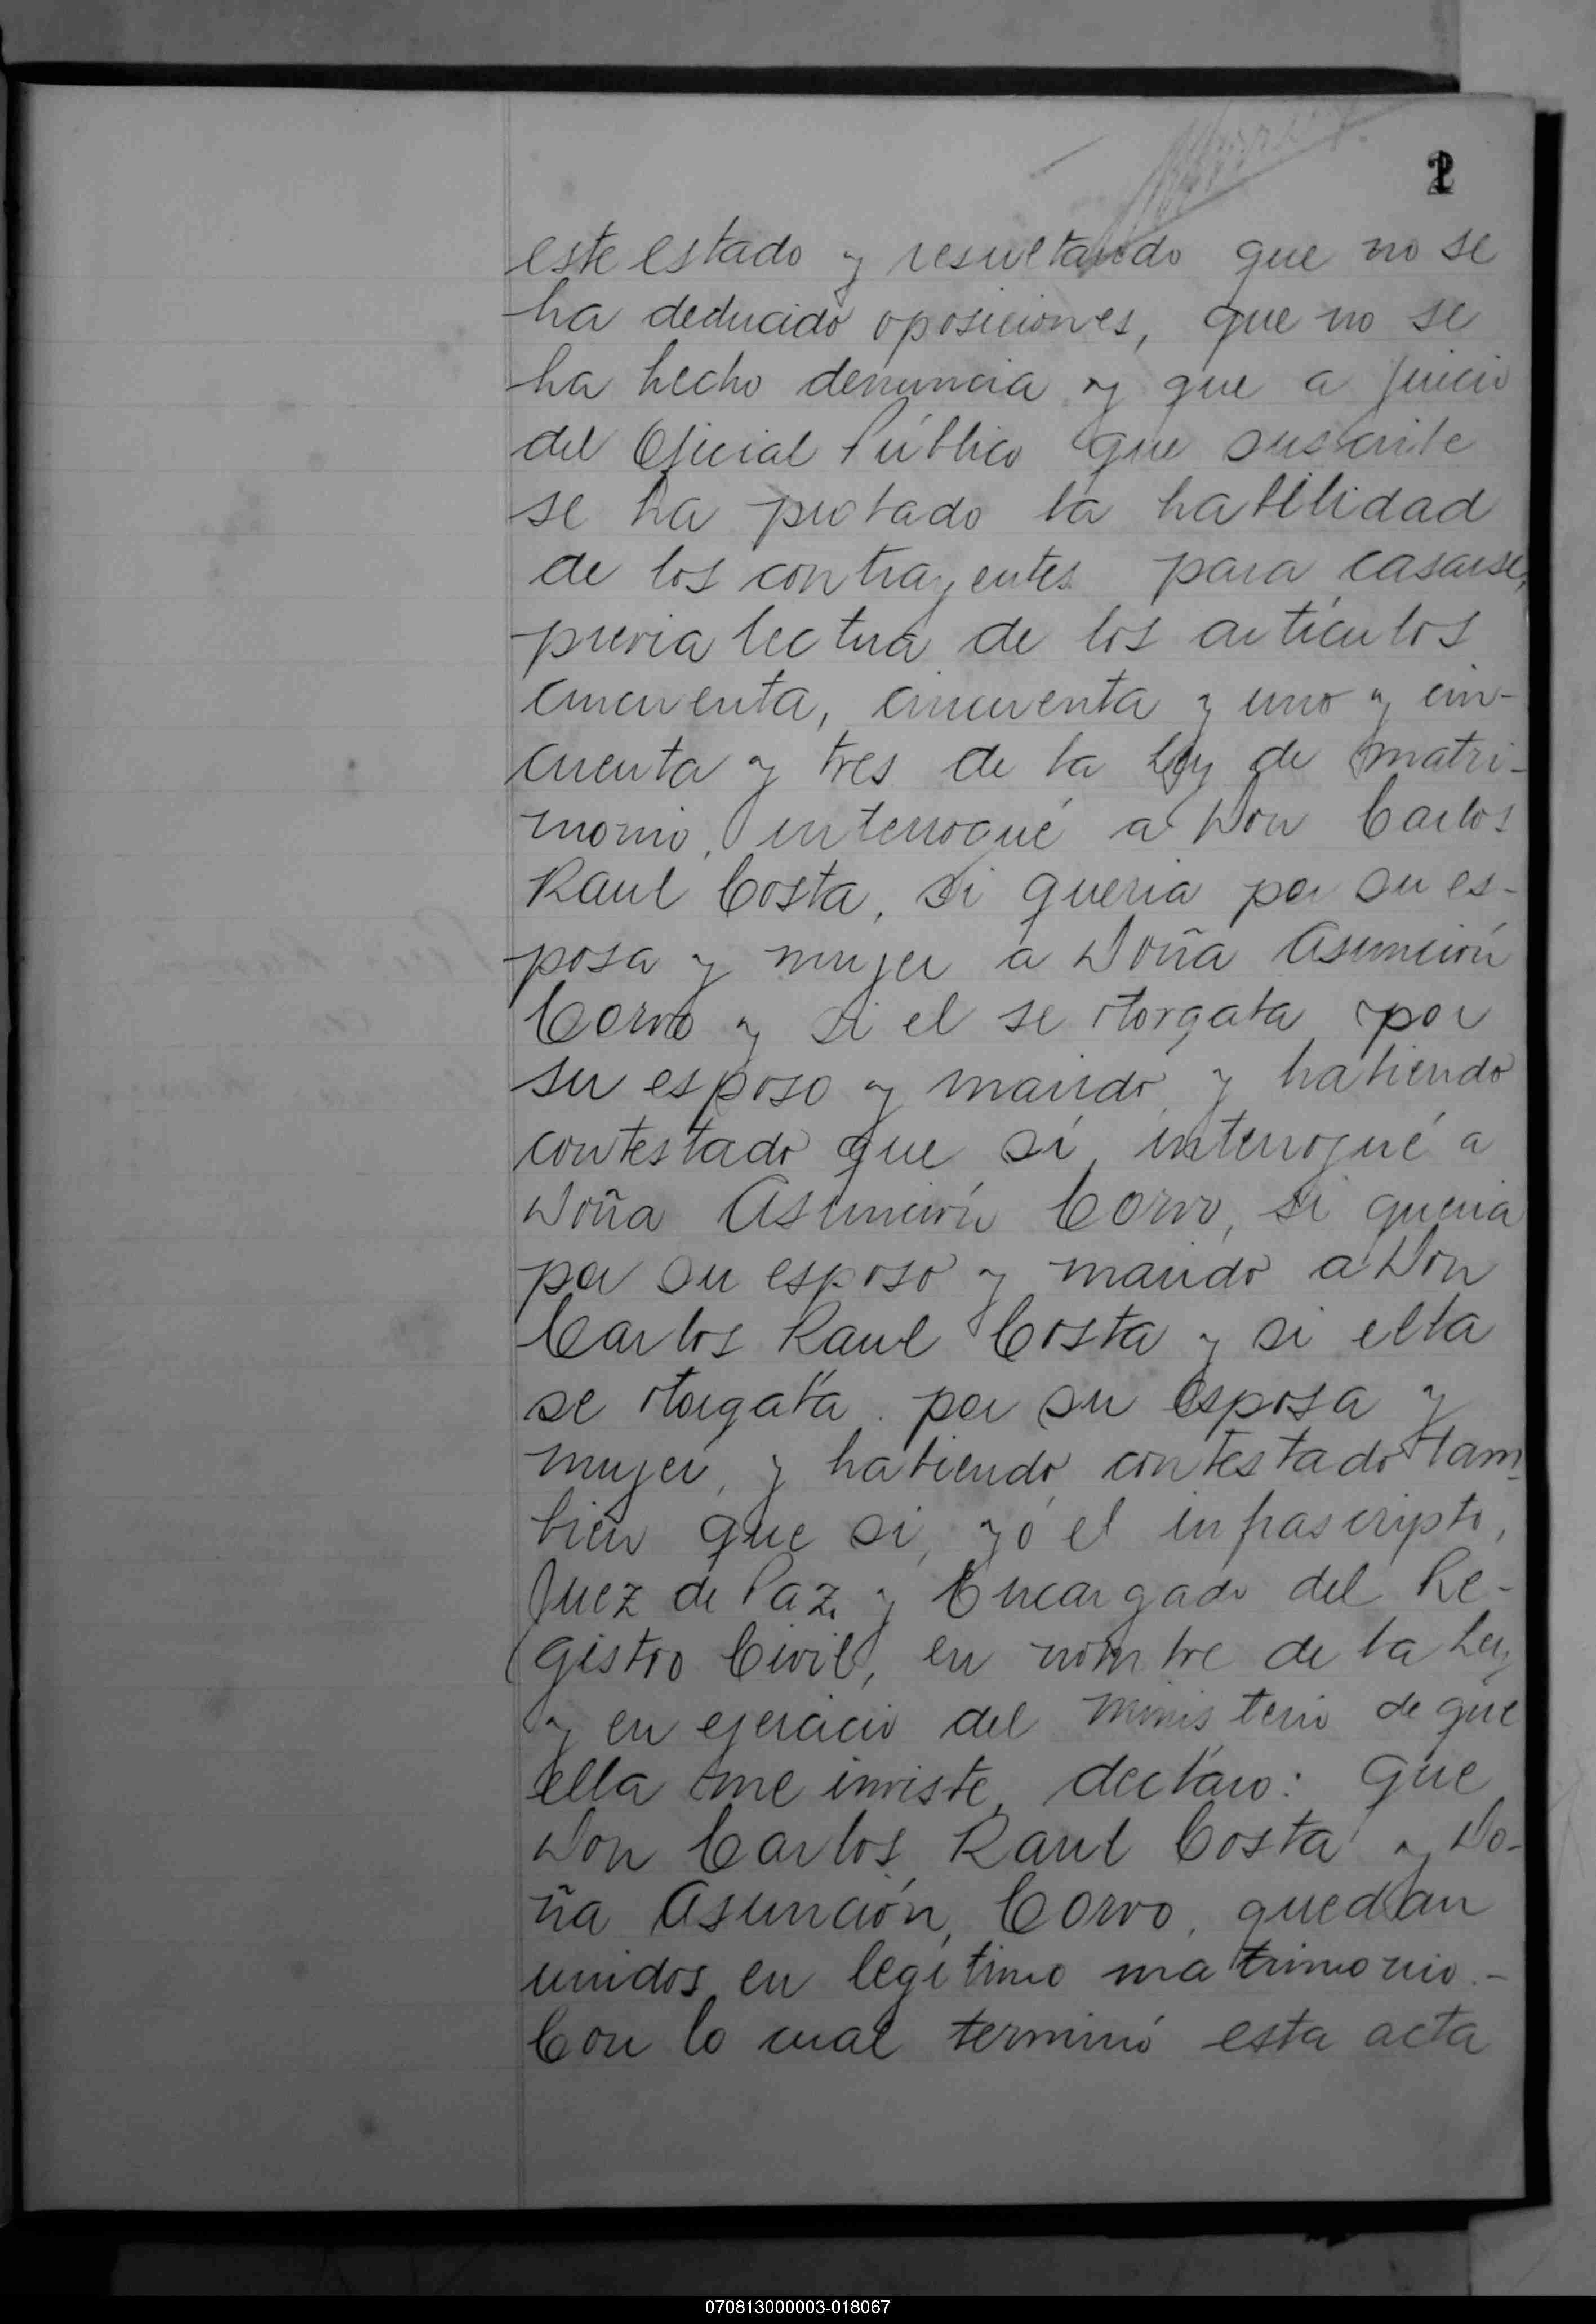 2
este estado y resultando que no se
ha deducido oposiciones, que no se
ha hecho denuncia y que a juicio
del Oficial Público que suscribe
se ha probado la habilidad
de los contrayentes para casarse,
previa lectura de los artículos
cincuenta, cincuenta y uno y cin-
cuenta y tres de la ley de matri-
monio, interrogué a Don Carlos
Raul Costa, si queria por su es-
posa y mujer a Doña Asunción
Corvo y si el se otorgaba por
su esposo y marido y habiendo
contestado que sí, interrogué a
Doña Asunción Corvo, si queria
por su esposo y marido a Don
Carlos Raul Costa y si ella
se otorgaba por su esposa y
mujer, y habiendo contestado tam-
bien que si, yó el infrascripto,
Juez de Paz y Encargado del Re-
gistro Civil, en nombre de la Ley
y en ejercicio del ministerio de que
ella me inviste, declaro: que
Don Carlos Raul Costa y Do-
ña Asunción Corvo, quedan
unidos en legítimo matrimonio.-
Con lo cual terminó esta acta
070813000003-018067